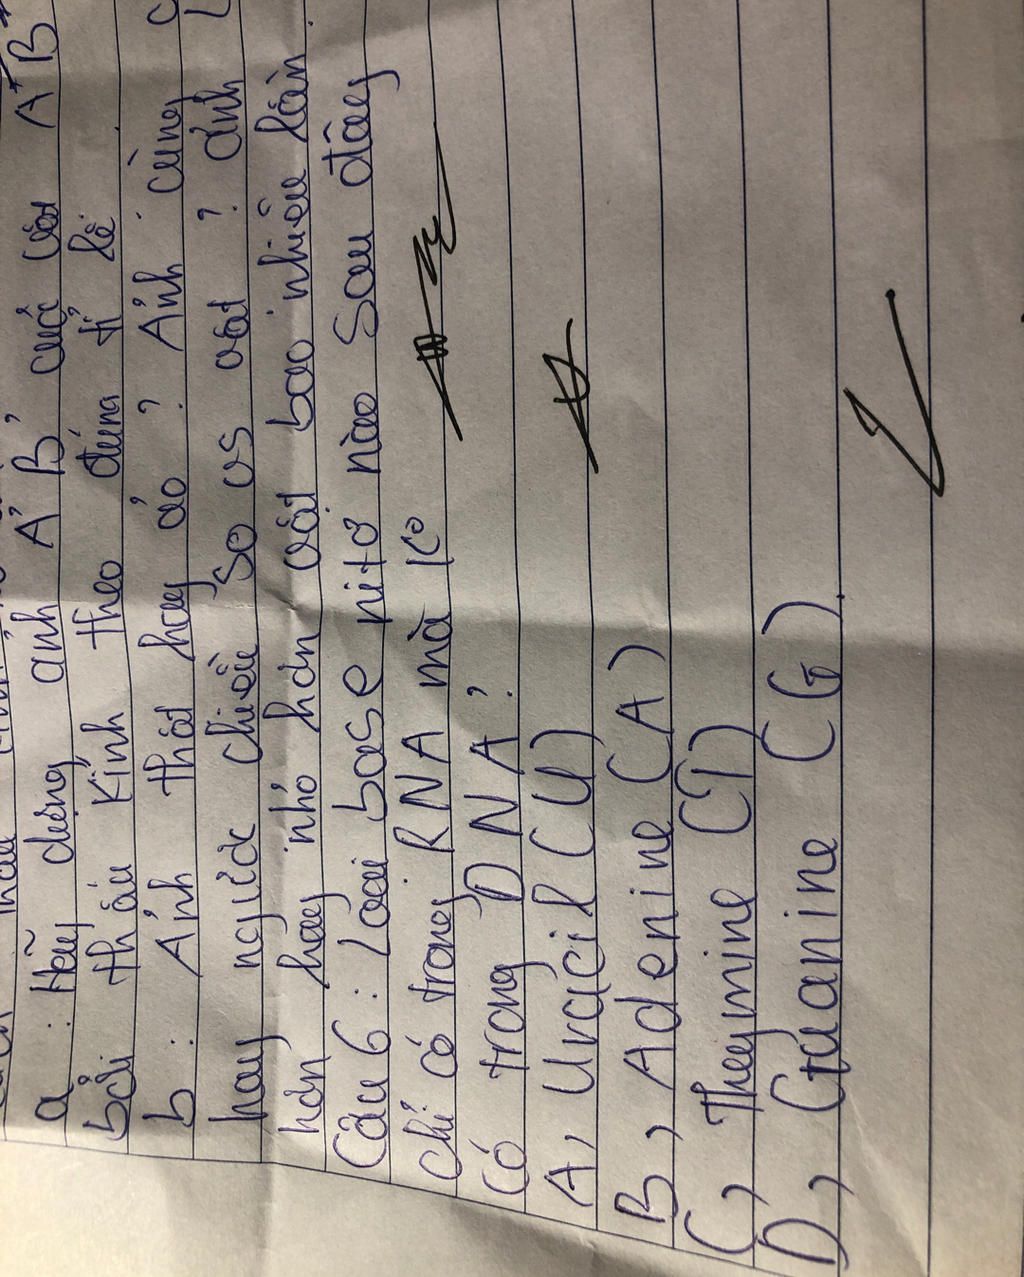 a : Hãy dựng ảnh A' B' của vật A B
bởi thấu kính theo đúng tỉ lệ
b : Ảnh thật hay ảo ? Ảnh cùng
hay ngược chiều so vs vật ? ảnh
hơn hay nhỏ hơn vật bao nhiêu lần
Câu 6 : Loại base nitơ nào sau đây
chỉ có trong RNA mà ko
có trong DNA ?
A, Uracil (U)
B, Adenine (A)
C, Theymine (T)
D, Guanine (G).